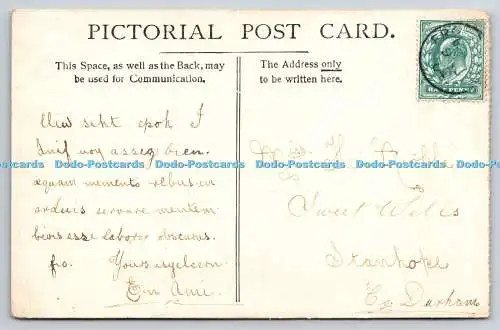 PICTORIAL POST CARD.
This Space, as well as the Back, may
be used for Communication.
The Address only
to be written here.
HALF PENNY
llew siht epoh I
assez bien.
æquam memento rebus in
arduis servare mentem
brevis esse laboro obscurus.
Yours
En Ami.
Sweet Wells
Stanhope
Co Durham
Dodo-Postcards Dodo-Postcards Dodo-Postcards Dodo-Postcards Dodo-Postcards